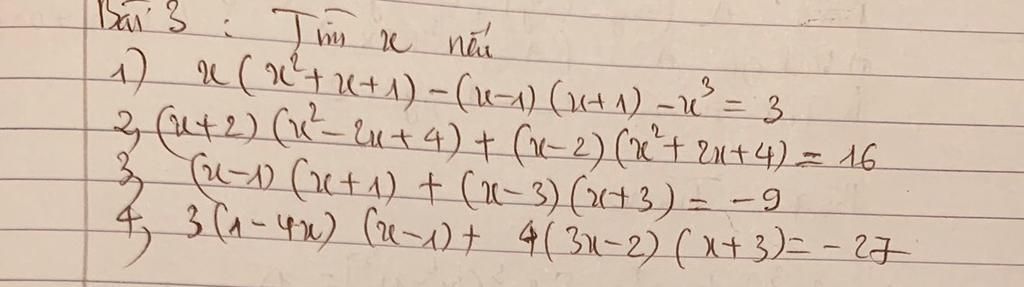 Bài 3 : Tìm x nếu
1) x(x²+x+1)-(x-1)(x+1)-x³=3
2, (x+2)(x²-2x+4)+(x-2)(x²+2x+4)=16
3, (x-1)(x+1)+(x-3)(x+3)=-9
4, 3(1-4x)(x-1)+4(3x-2)(x+3)=-27